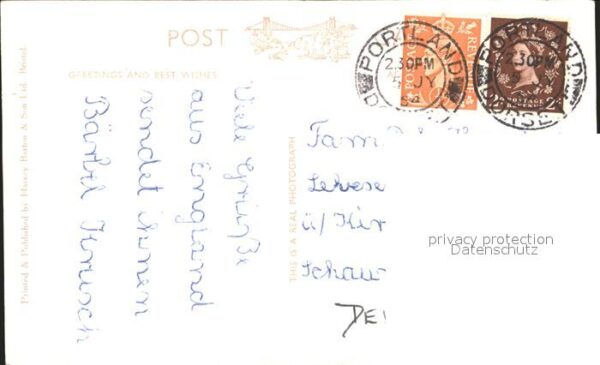 POST
GREETINGS AND BEST WISHES
Viele Grüße
aus England
sendet Ihnen
Bärbel
Printed & Published by Harvey Barton & Son Ltd. Bristol
THIS IS A REAL PHOTOGRAPH
PORTLAND
2.30PM
5 JY
54
PORTLAND
2.30PM
JY
DORSET
REVENUE
POSTAGE
Fam
Schaw
privacy protection
Datenschutz
DE